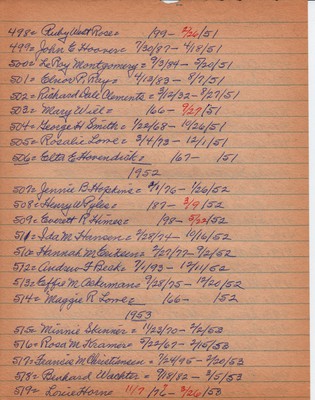 498= Ruby Watt Rose= 199- 2/26/51
499= John E Hoover= 7/30/87- 4/18/51
500= LeRoy Montgomery= 9/3/84- 5/20/51
501= Elnor P. Rays= 4/12/83- 8/7/51
502= Richard Dale Clements= 3/12/32- 9/27/51
503= Mary Will= 166- 9/27/51
504= George H Smith= 1/22/68- 10/26/51
505= Rosalie Love= 3/4/93- 12/1/51
506= Elta E Hovendick= 167- 151
1952
507= Jennie B Hopkins= 2/1/76- 1/26/52
508= Henry W Pyles= 187- 3/9/52
509= Everett R Himes= 198- 5/22/52
510= Ida M Hansen= 2/28/74- 10/16/52
510= Hannah M Ericksen= 2/27/77- 9/2/52
512= Andrew F Beck= 7/1/93- 12/11/52
513= Effie M Ackerman= 9/28/75- 12/20/52
514= Maggie R Love= 166- 152
1953
515= Minnie Skinner= 1/23/70- 2/2/53
516= Rosa M Kramer= 2/22/67- 2/15/53
517= Francis M Christensen= 7/24/95- 2/20/53
518= Burhard Wachter= 9/18/82- 3/5/53
519= Louie Horne 11/7/76- 3/26/53